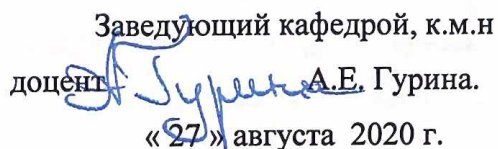 Заведующий кафедрой, к.м.н
доцент А.Гурина А.Е. Гурина.
« 27 » августа 2020 г.